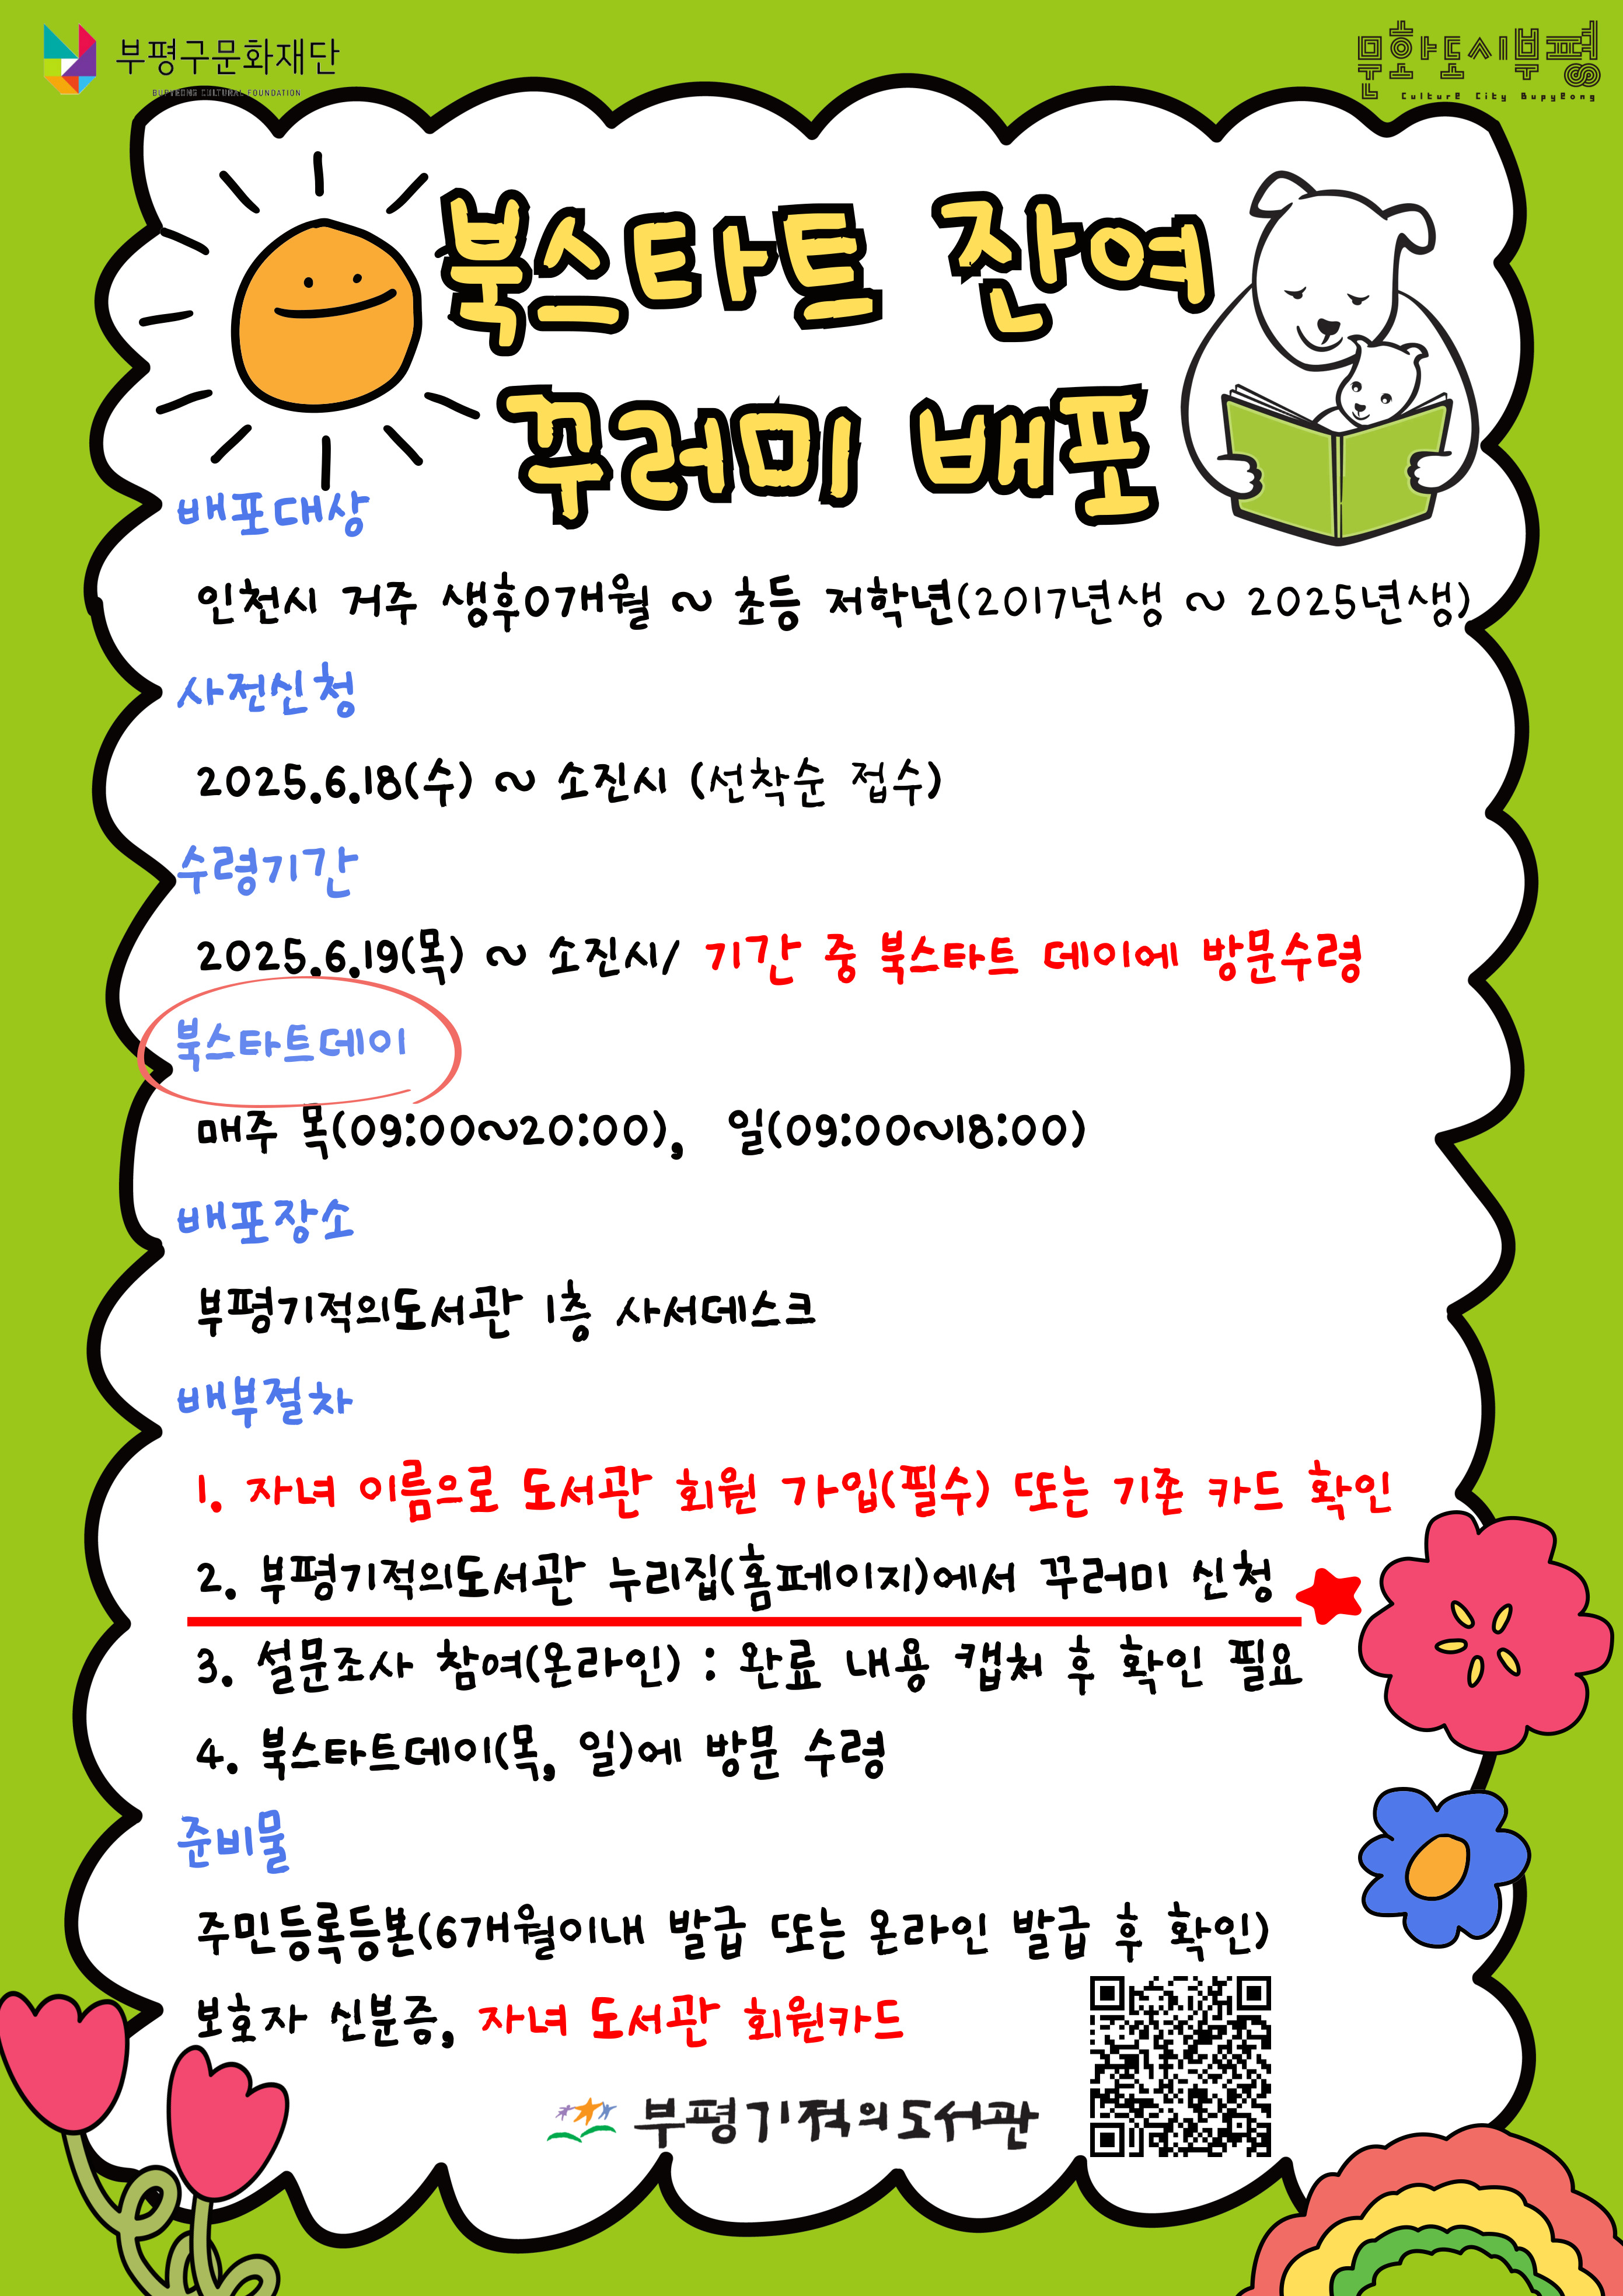 부평구문화재단
BUPYEONG CULTURAL FOUNDATION
문화도시부평
Culture City Bupyeong
북스타트 잔여
꾸러미 배포
배포대상
인천시 거주 생후0개월 ~ 초등 저학년(2017년생 ~ 2025년생)
사전신청
2025.6.18(수) ~ 소진시 (선착순 접수)
수령기간
2025.6.19(목) ~ 소진시/ 기간 중 북스타트 데이에 방문수령
북스타트데이
매주 목(09:00~20:00), 일(09:00~18:00)
배포장소
부평기적의도서관 1층 사서데스크
배부절차
1. 자녀 이름으로 도서관 회원 가입(필수) 또는 기존 카드 확인
2. 부평기적의도서관 누리집(홈페이지)에서 꾸러미 신청
3. 설문조사 참여(온라인) : 완료 내용 캡처 후 확인 필요
4. 북스타트데이(목, 일)에 방문 수령
준비물
주민등록등본(6개월이내 발급 또는 온라인 발급 후 확인)
보호자 신분증, 자녀 도서관 회원카드
부평기적의도서관